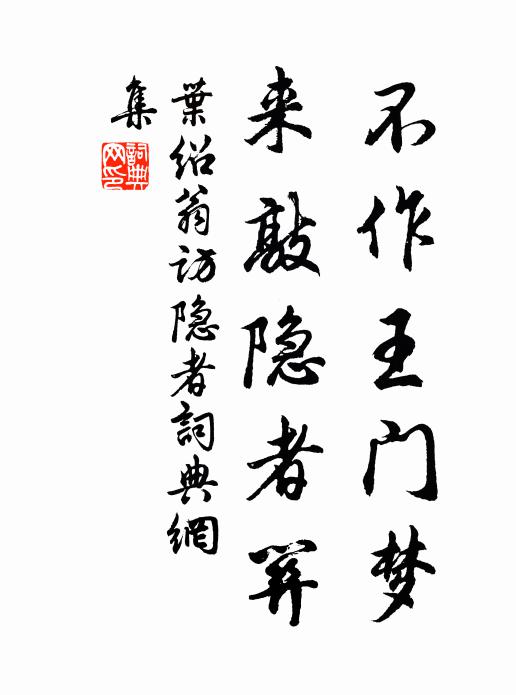 不作王门梦
来敲隐者關
葉紹翁访隐者詞典網
集
詞典
网印